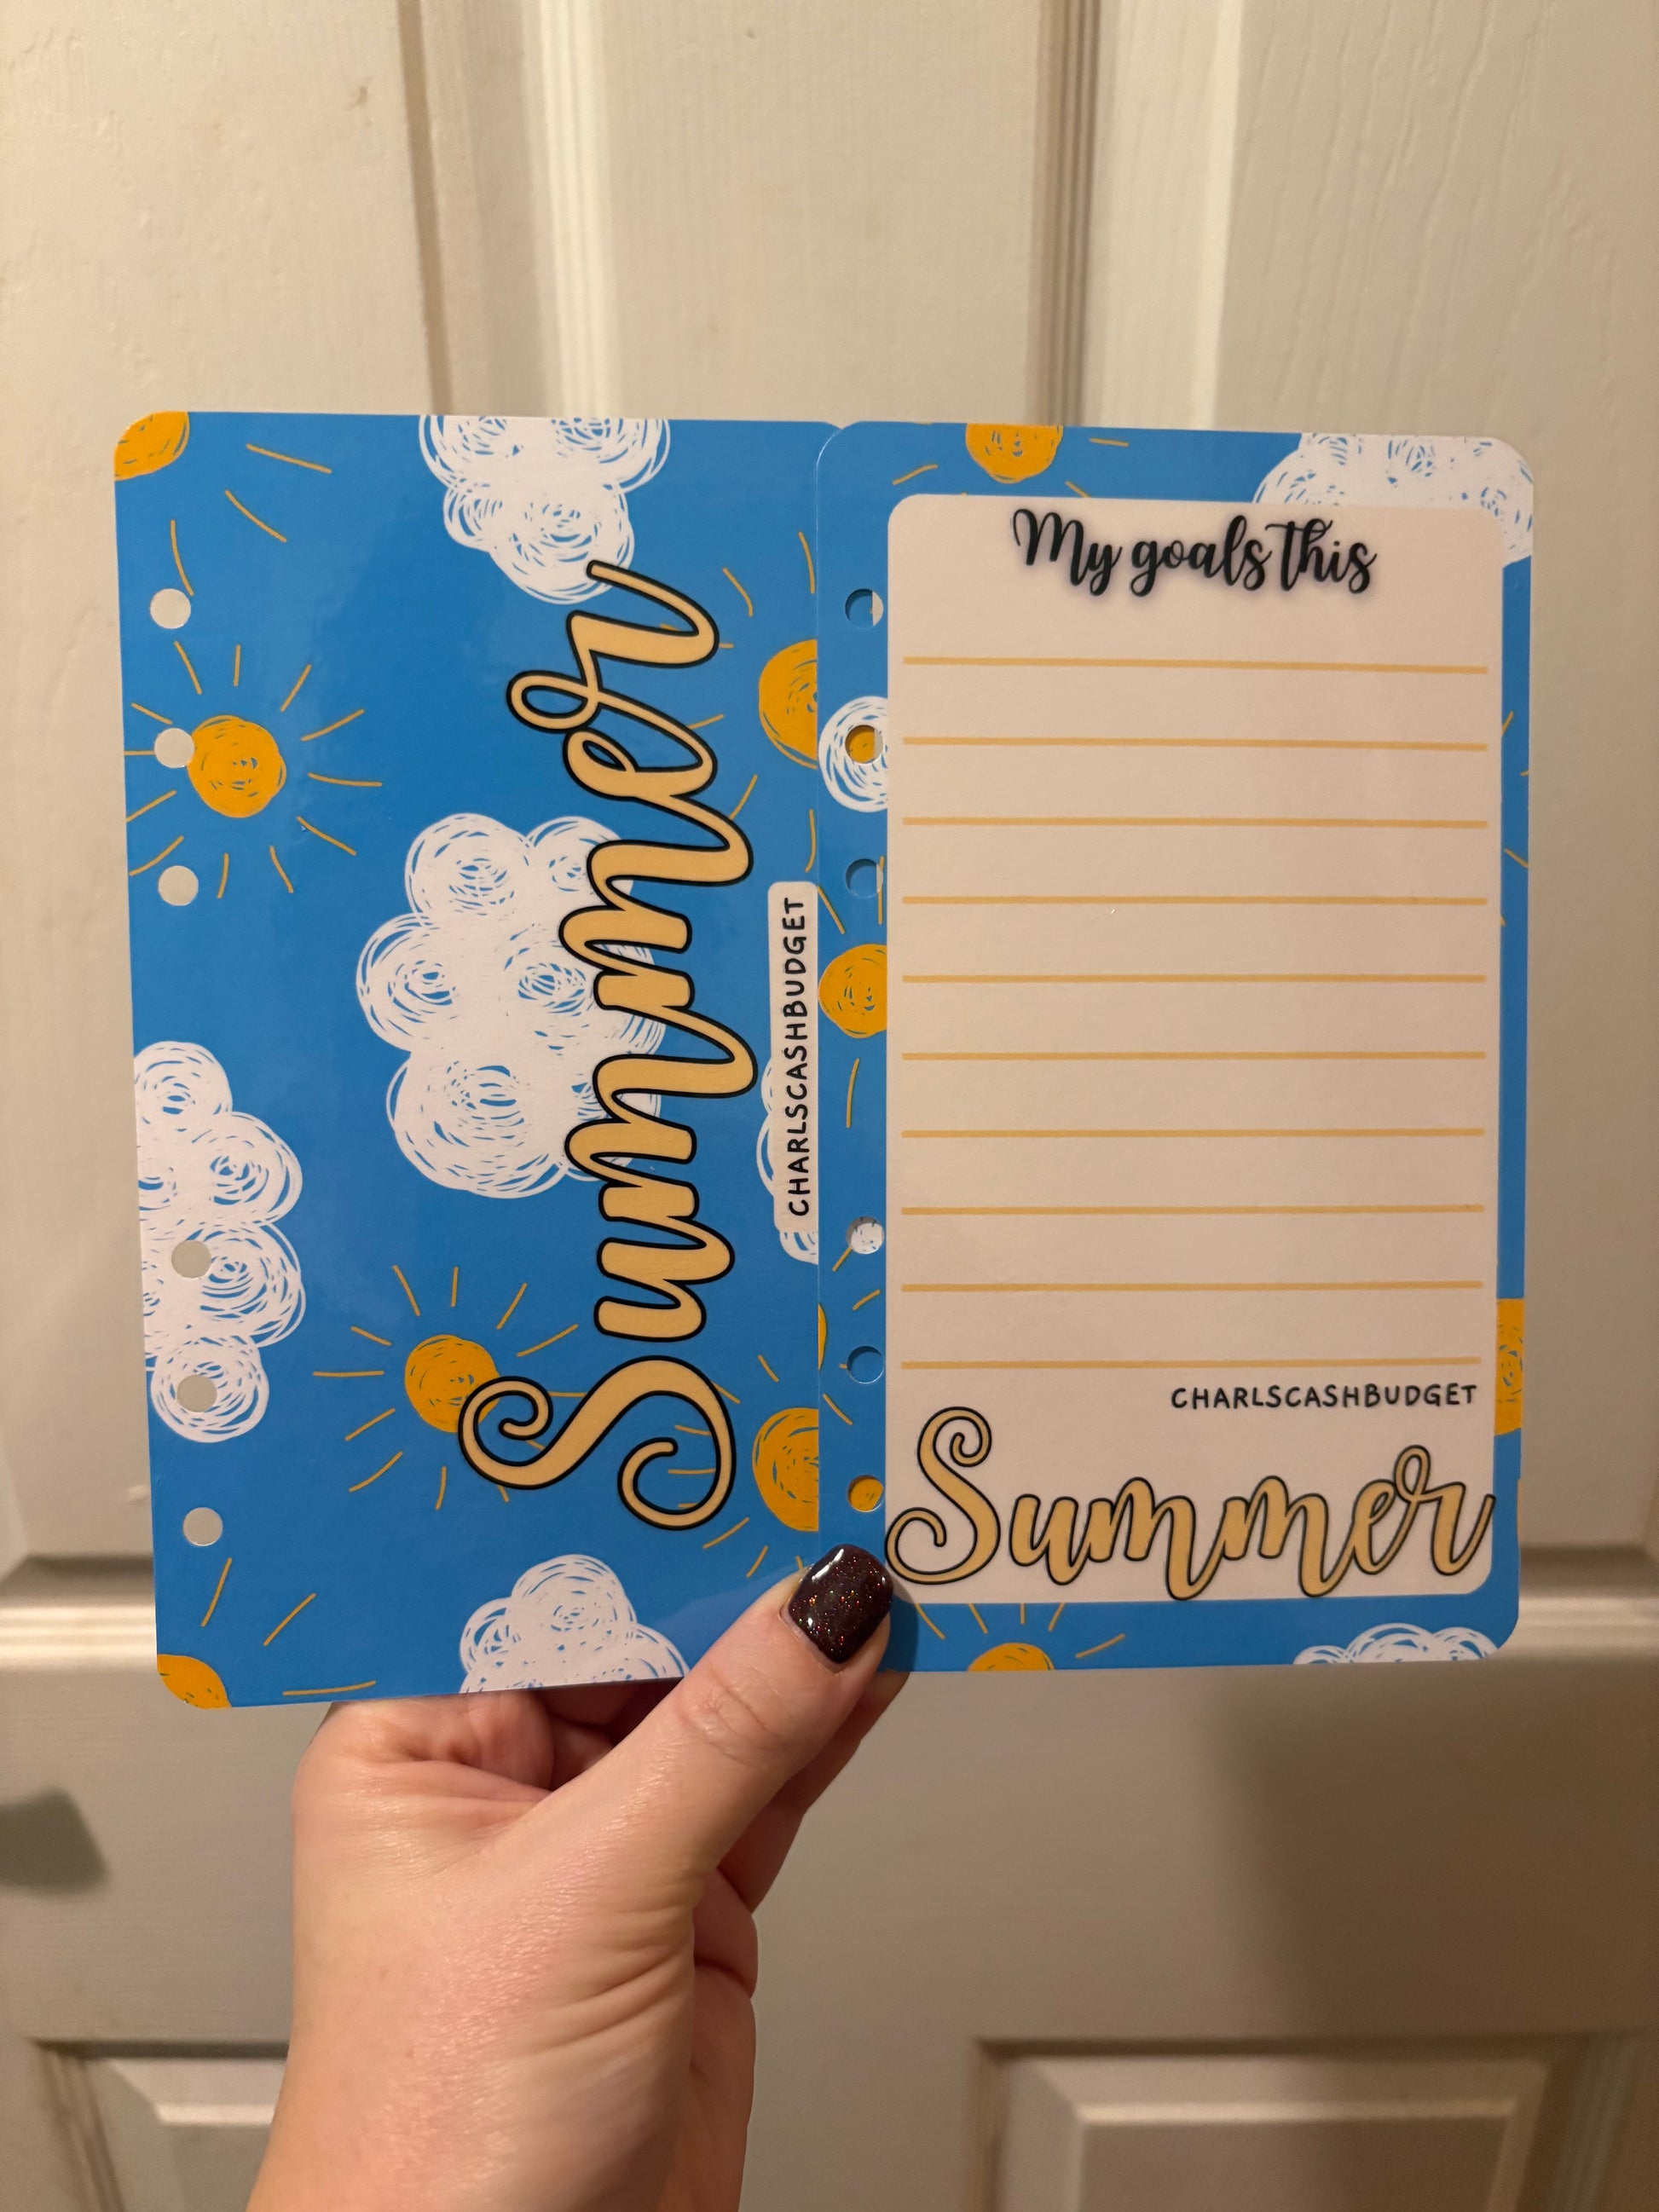 Summer
CHARLSCASHBUDGET
My goals this
CHARLSCASHBUDGET
Summer